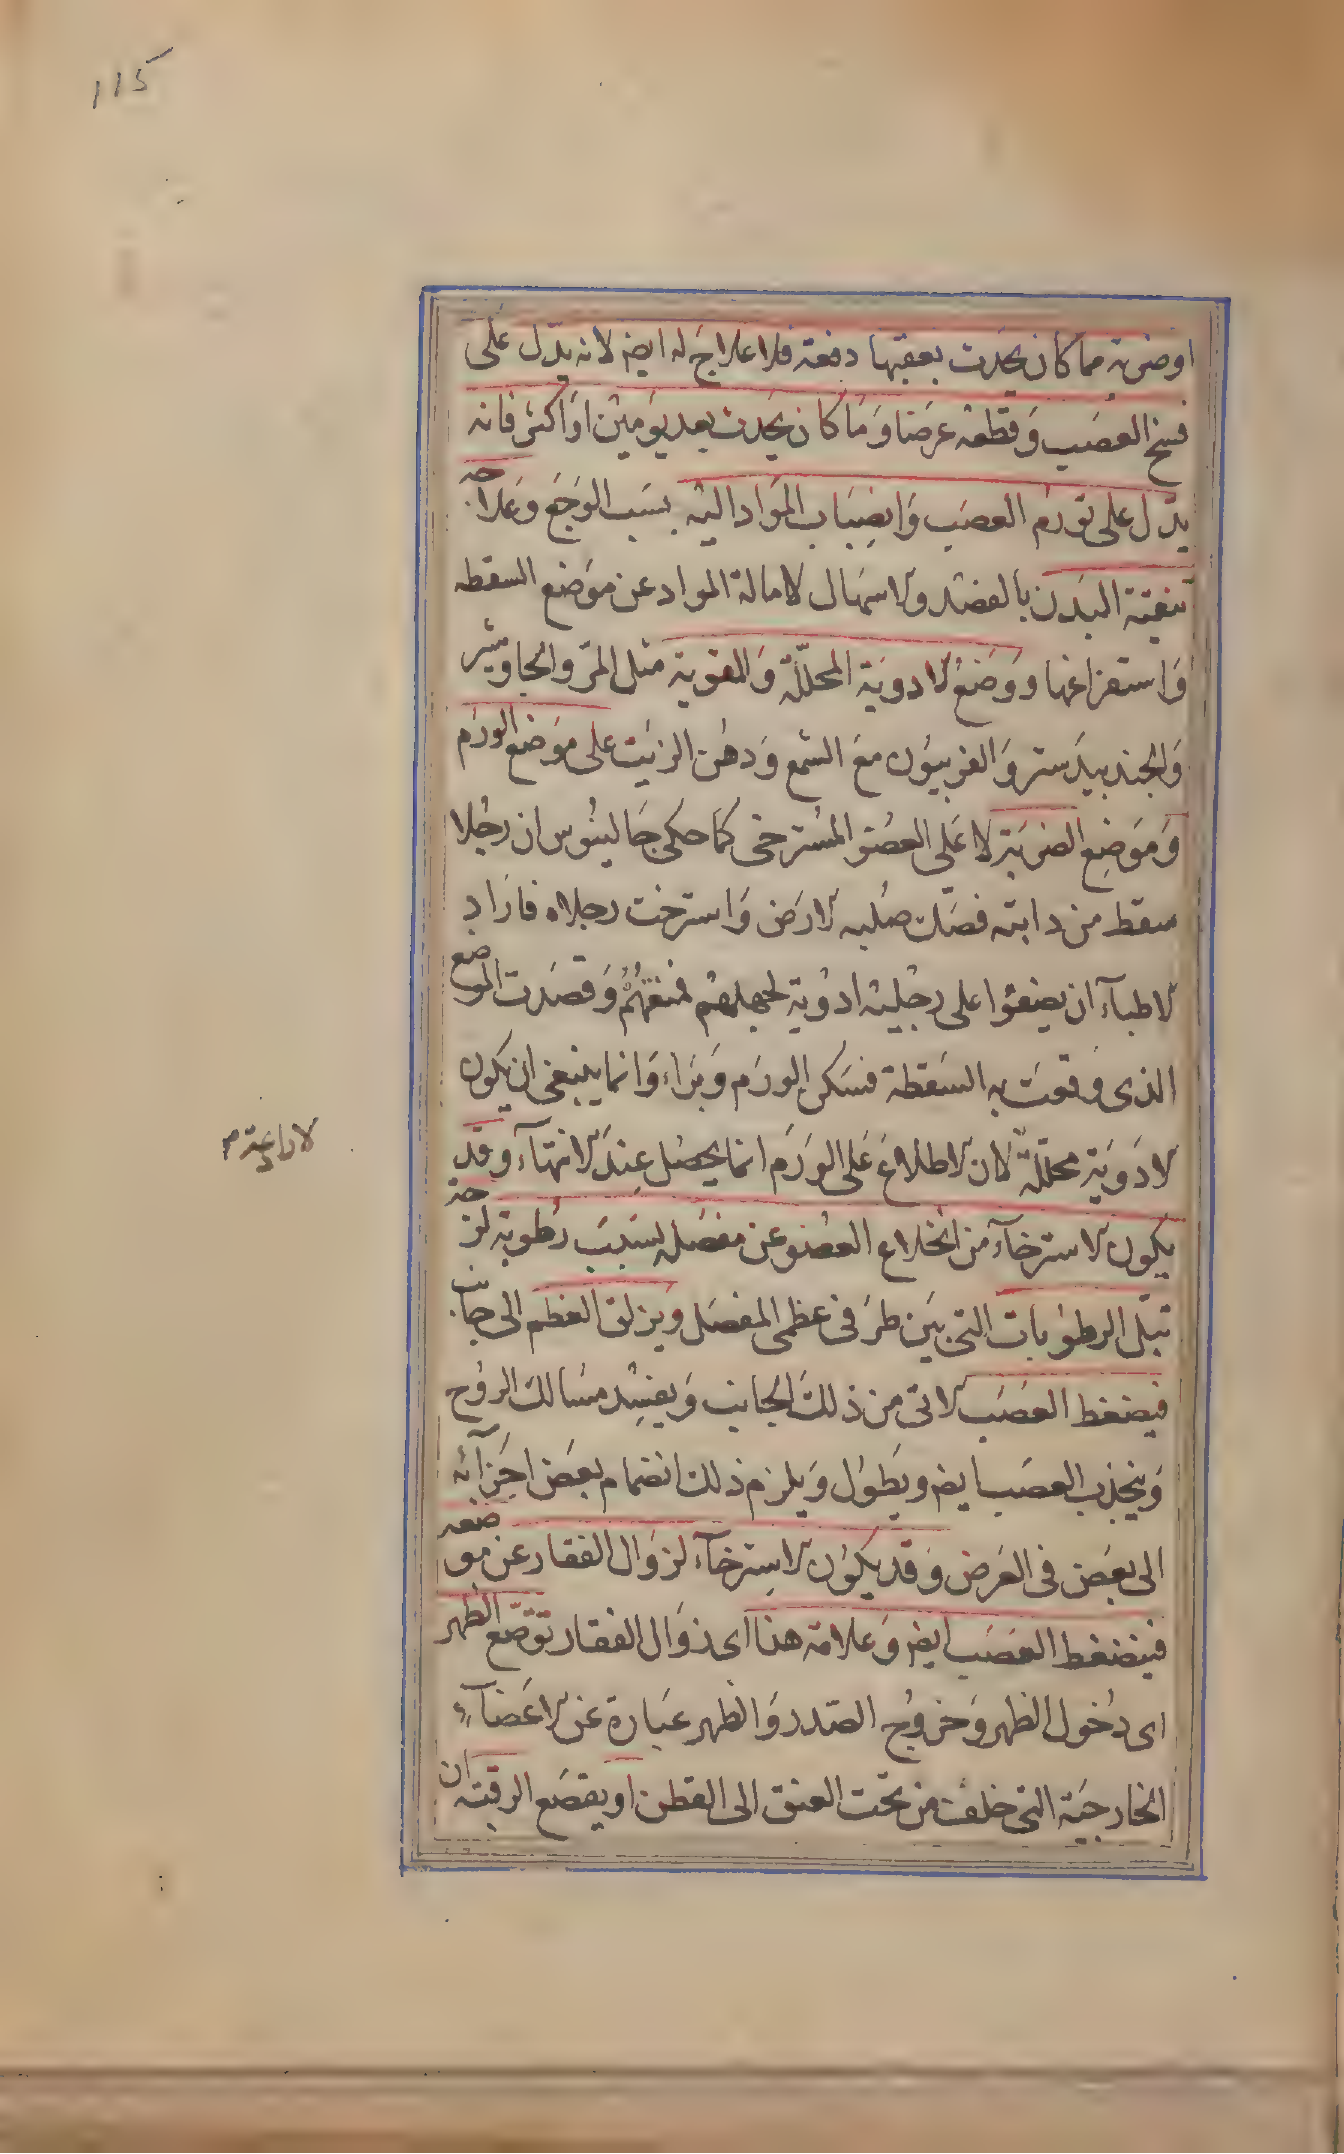 115
او ضربة فما كان يحدث بعقبها دفعة فلا علاج له ايضم لانه يدل على
فسخ العصب وَقطعه عرَضا وَمَا كان يحدث بعد يوَمين اوَ اكثر فانه
يدّل على توَرم العصَب وَانصِبَاب الموَاد اليه بسَبب الوَجَع وَعَلاجه
تنقية البدَن بالفصد والاسهال لامالة المواد عن موَضع السقطه
وَاستفراغها ووَضع الادويَة المحللّة وَالمقوية مثل المرّ والجاوشير
وَالجندبيدَستر وَالفربيُون معَ الشمع وَدهن الزيَت على موَضع الورَم
وَمَوَضِع الضربَة لا عَلى العضو المسُترخى كمَا حكى جَالينوُس ان رجُلا
سقط من دابته فصَك صُلبه الارَض وَاسترخت رجلاه فارَاد
الاطبآء ان يضعوُا على رجليْه ادوُية لجهلهم فمنعَتهُمُ وَقصَدت الموضع
الذى وقعَت به السَقطة فسَكن الورَم وَبرَاء وَانما ينبغى ان يكون
الادَويَة محلّلة لان الاطلاع عَلى الورَم انما يحصُل عِندَ الانتهآء وقد
يكون الاسترخآء من انخلاع العضو عن مفصَله بسَبَب رُطوبة لزجة
تبلّ الرطوُبات التى بيَن طرَفى عظمى المفصَل ويزلق العَظم الى جانب
فيضغط العصَب الاتى من ذلكَ الجانب وَيفسِد مسَالك الروُح
وَينجذب العصَب ايضم ويَطوُل وَيلزم ذلك انضمام بعَض اجَزآئه
الى بعَض فى العَرض وَقد يكوُن الاسِترخآء لزوَال الفقار عن موضعه
فينضغط العصَب ايضم وَعلامة هذا اى زوَال الفقار تقصّع الظهر
اى دخُول الظهر وَخروُج الصّدر وَالظهر عبَارة عَن الاعَضآء
الخارجيَة التى خلف من تحَت العنق الى القطن او يقصَع الرقبة ان